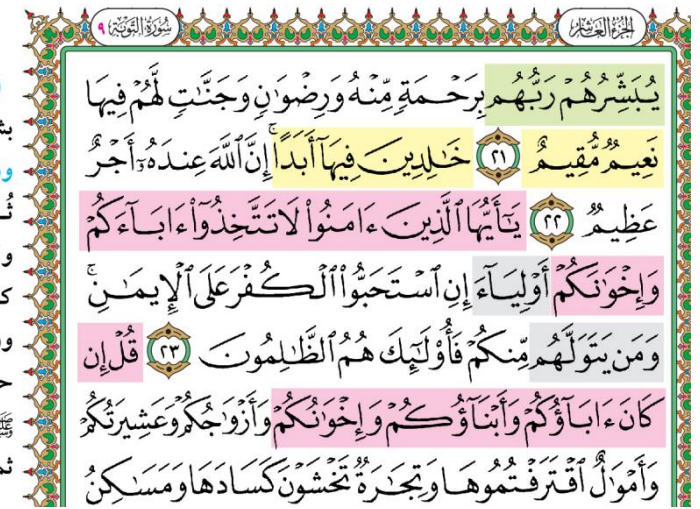 الجزء العاشر
سورة التوبة ٩
يُبَشِّرُهُمْ رَبُّهُم بِرَحْمَةٍ مِّنْهُ وَرِضْوَٰنٍ وَجَنَّٰتٍ لَّهُمْ فِيهَا
نَعِيمٌ مُّقِيمٌ ٢١ خَٰلِدِينَ فِيهَآ أَبَدًا ۚ إِنَّ ٱللَّهَ عِندَهُۥٓ أَجْرٌ
عَظِيمٌ ٢٢ يَٰٓأَيُّهَا ٱلَّذِينَ ءَامَنُوا۟ لَا تَتَّخِذُوٓا۟ ءَابَآءَكُمْ
وَإِخْوَٰنَكُمْ أَوْلِيَآءَ إِنِ ٱسْتَحَبُّوا۟ ٱلْكُفْرَ عَلَى ٱلْإِيمَٰنِ ۚ
وَمَن يَتَوَلَّهُم مِّنكُمْ فَأُو۟لَٰٓئِكَ هُمُ ٱلظَّٰلِمُونَ ٢٣ قُلْ إِن
كَانَ ءَابَآؤُكُمْ وَأَبْنَآؤُكُمْ وَإِخْوَٰنُكُمْ وَأَزْوَٰجُكُمْ وَعَشِيرَتُكُمْ
وَأَمْوَٰلٌ ٱقْتَرَفْتُمُوهَا وَتِجَٰرَةٌ تَخْشَوْنَ كَسَادَهَا وَمَسَٰكِنُ